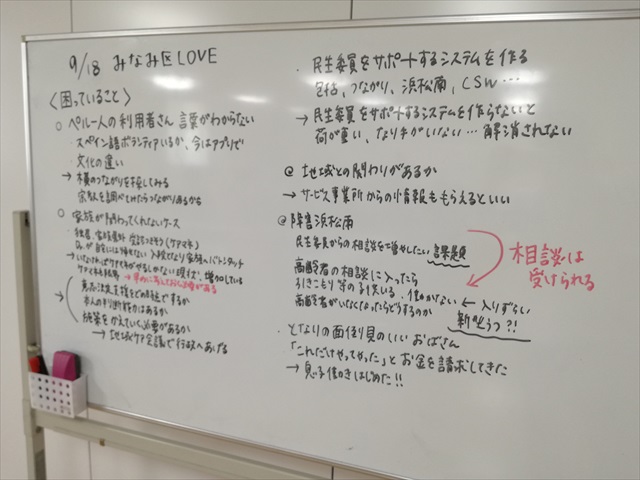 9/18 みなみ区LOVE
〈困っていること〉
○ ペルー人の利用者さん 言葉がわからない
・スペイン語ボランティアいるか、今はアプリで
・文化の違い
→ 横のつながりを探してみる
宗教を調べてみたらつながりあるかも
○ 家族が関わってくれないケース
独居、家族県外 (ケアマネ)
→ いなければケアマネがやるしかない現状、増加している
ケアマネ疲弊 → 早めに
意思決定支援をどの時点でするか
本人の判断能力はあるか
施策をかえていく必要があるか
→ 地域ケア会議で行政へあげる
・民生委員をサポートするシステムを作る
包括、つながり、浜松南、CSW…
→ 民生委員をサポートするシステムを作らないと
荷が重い、なり手がいない…解消されない
@ 地域との関わりがあるか
→ サービス事業所からの情報ももらえるといい
@ 障害浜松南
民生委員からの相談を増やしたい 課題
高齢者の相談に入ったら
引きこもり等の子供いる、働かない ← 入りずらい
高齢者がいなくなったらどうするのか
相談は
受けられる
・となりの面倒見のいいおばさん
「これだけやってやった」とお金を請求してきた
→ 息子働きはじめた!!